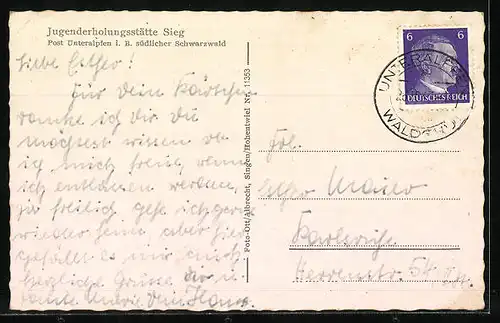 Jugenderholungsstätte Sieg
Post Unteralpfen i. B. südlicher Schwarzwald
Liebe Esther!
Für Dein Kärtchen
danke ich dir du
möchtest wissen ob
ich mich freue wenn
ich entlassen werden,
ja freilich gehe ich gern
wieder heim aber hier
gefällt es mir auch
herzliche Grüsse dir u.
Tante Marie Dein Hans
Foto-Ott/Albrecht, Singen/Hohentwiel Nr. 11353
6 6
DEUTSCHES REICH
UNTERALPFEN
WALDSHUT
Frl.
Maier
Karlsruhe
Herrenstr. 54